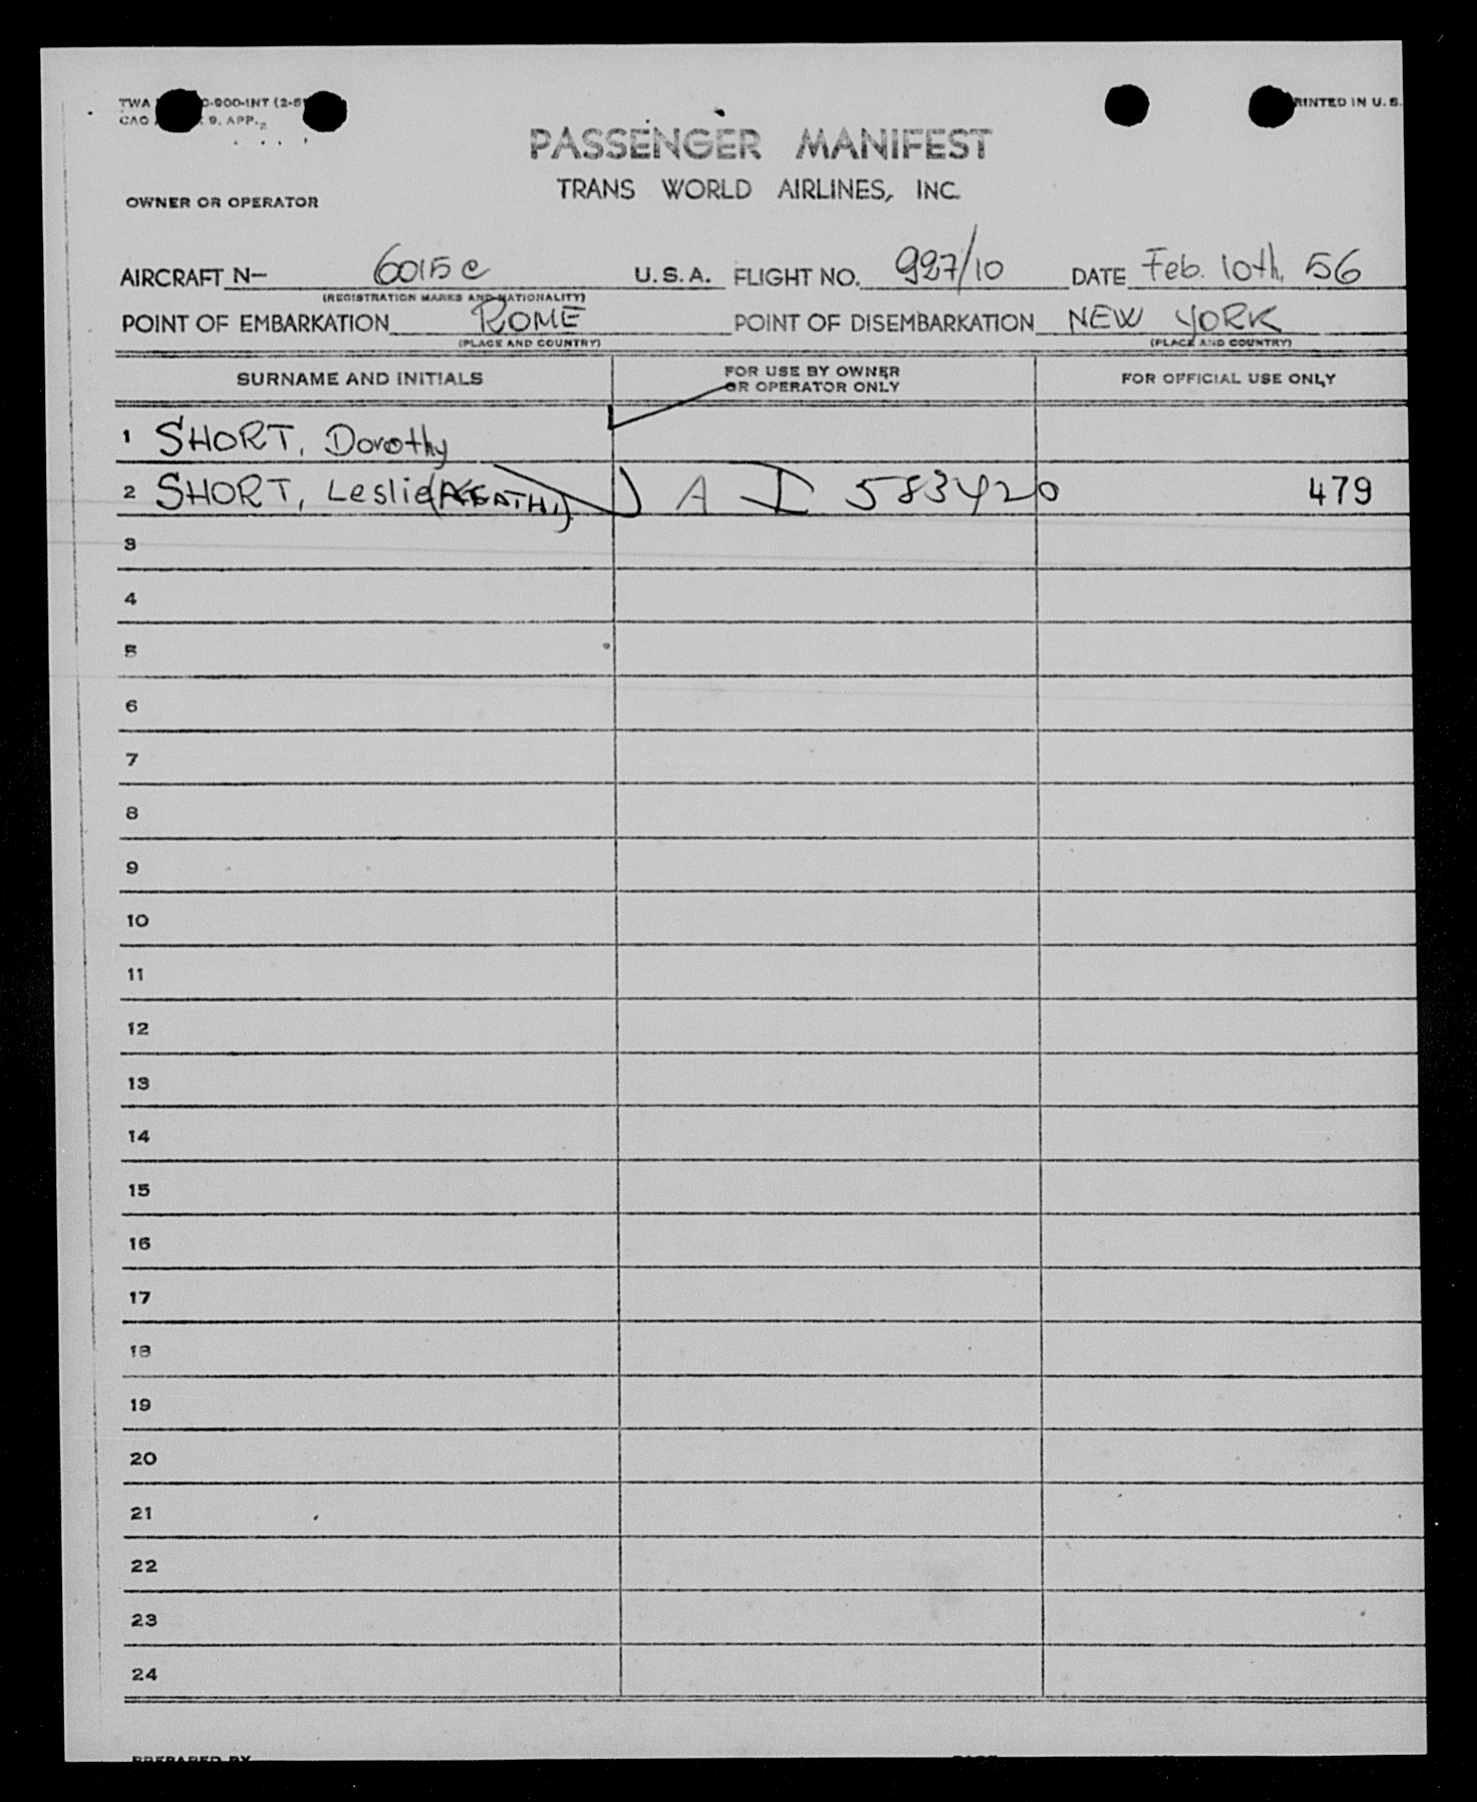 TWA 0-900-INT (2-5
CAO 9, APP.
PRINTED IN U. S.
PASSENGER MANIFEST
TRANS WORLD AIRLINES, INC.
OWNER OR OPERATOR
AIRCRAFT N— 6015c U.S.A. FLIGHT NO. 927/10 DATE Feb. 10th, 56
(REGISTRATION MARKS AND NATIONALITY)
POINT OF EMBARKATION ROME POINT OF DISEMBARKATION NEW YORK
(PLACE AND COUNTRY) (PLACE AND COUNTRY)
SURNAME AND INITIALS FOR USE BY OWNER OR OPERATOR ONLY FOR OFFICIAL USE ONLY
1 SHORT, Dorothy
2 SHORT, Leslie A I 583420 479
3
4
5
6
7
8
9
10
11
12
13
14
15
16
17
18
19
20
21
22
23
24
PREPARED BY